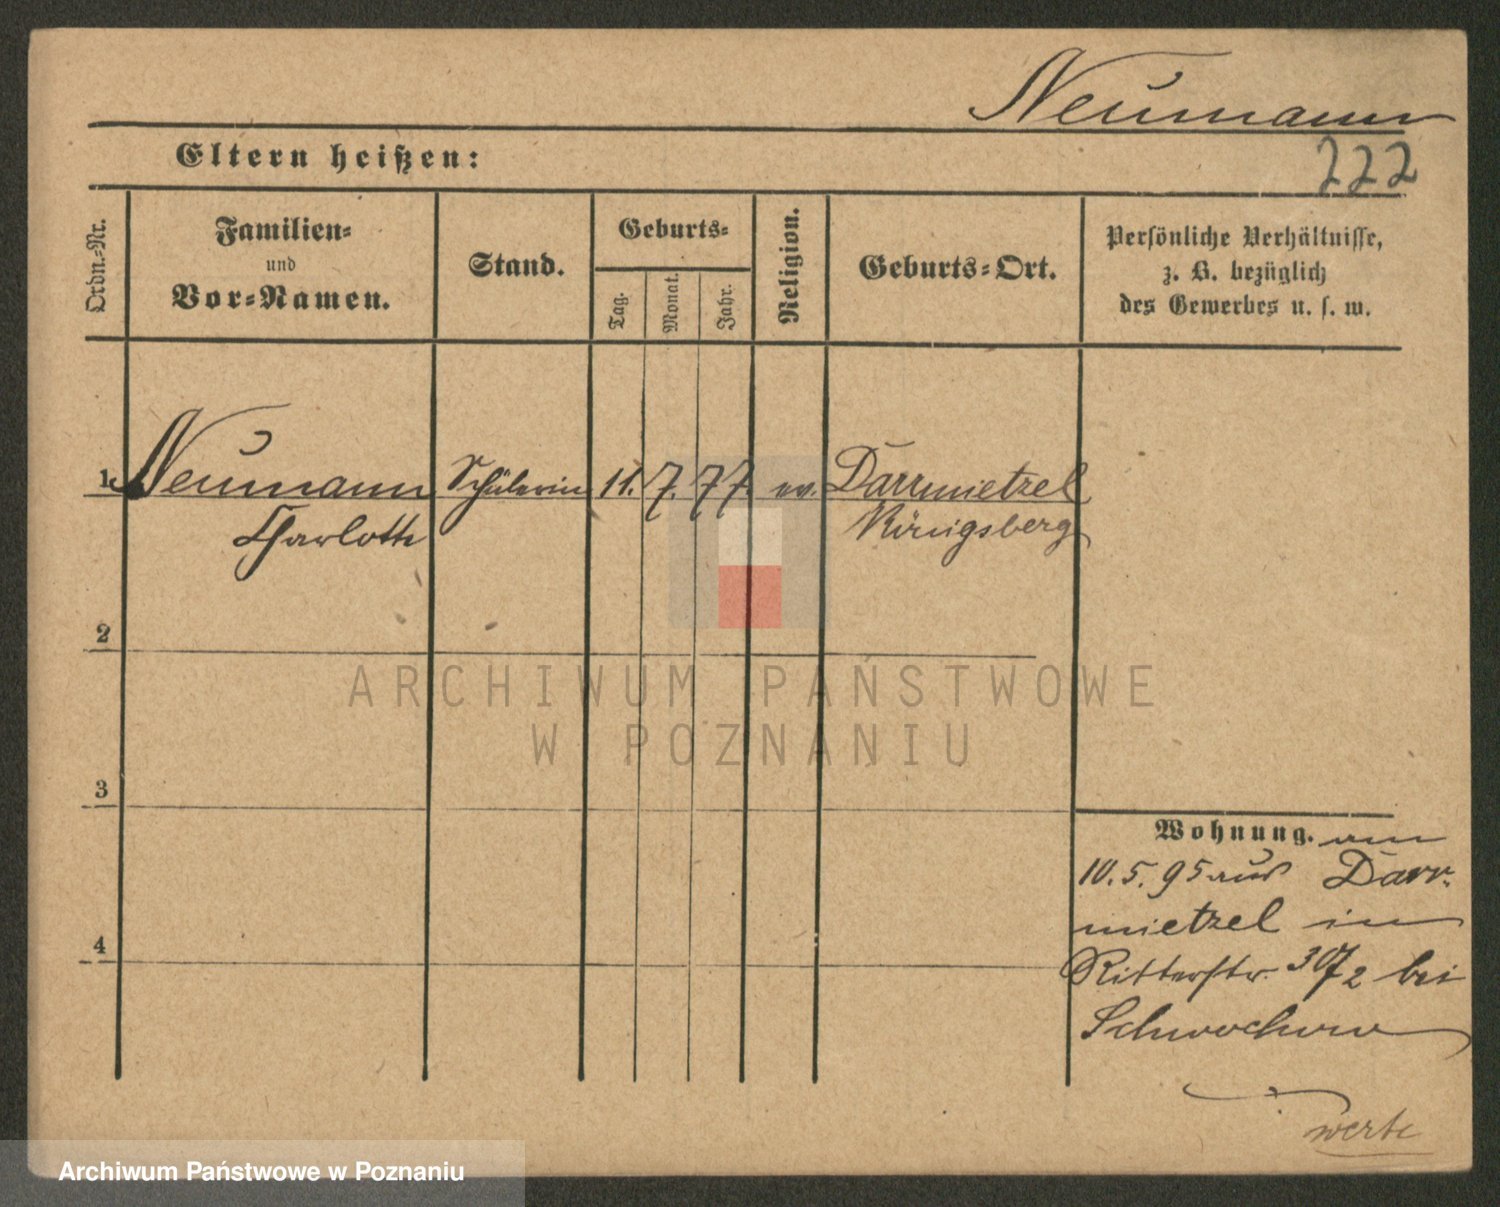 Neumann
Eltern heißen:
222
Ordn.-Nr.
Familien-
und
Vor-Namen.
Stand.
Geburts-
Tag.
Monat.
Jahr.
Religion.
Geburts-Ort.
Persönliche Verhältnisse,
z. B. bezüglich
des Gewerbes u. s. w.
1. Neumann Schülerin 11. 7. 77. ev. Darrmietzel
Charlotte Königsberg
2
3
4
Wohnung. am
10.5.95 aus Darr-
mietzel in
Ritterstr. 307/2 bei
ARCHIWUM PAŃSTWOWE
W POZNANIU
Archiwum Państwowe w Poznaniu